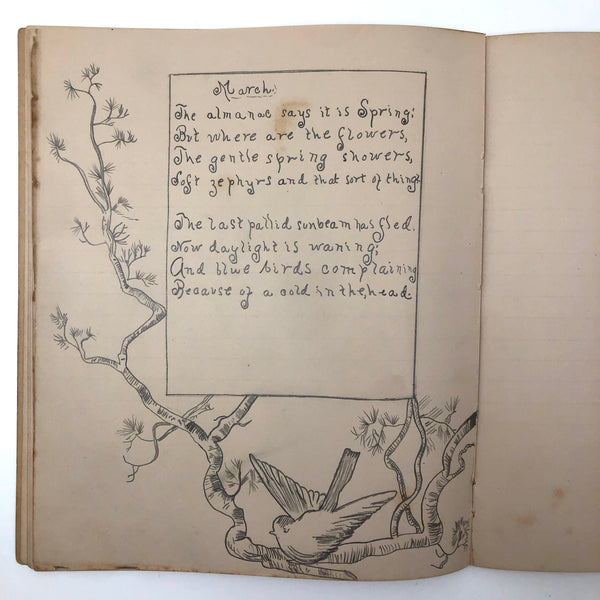 March.
The almanac says it is Spring;
But where are the flowers,
The gentle spring showers,
Soft zephyrs and that sort of thing.
The last pallid sunbeam has fled.
Now daylight is waning;
And blue birds complaining
Because of a cold in the, head.